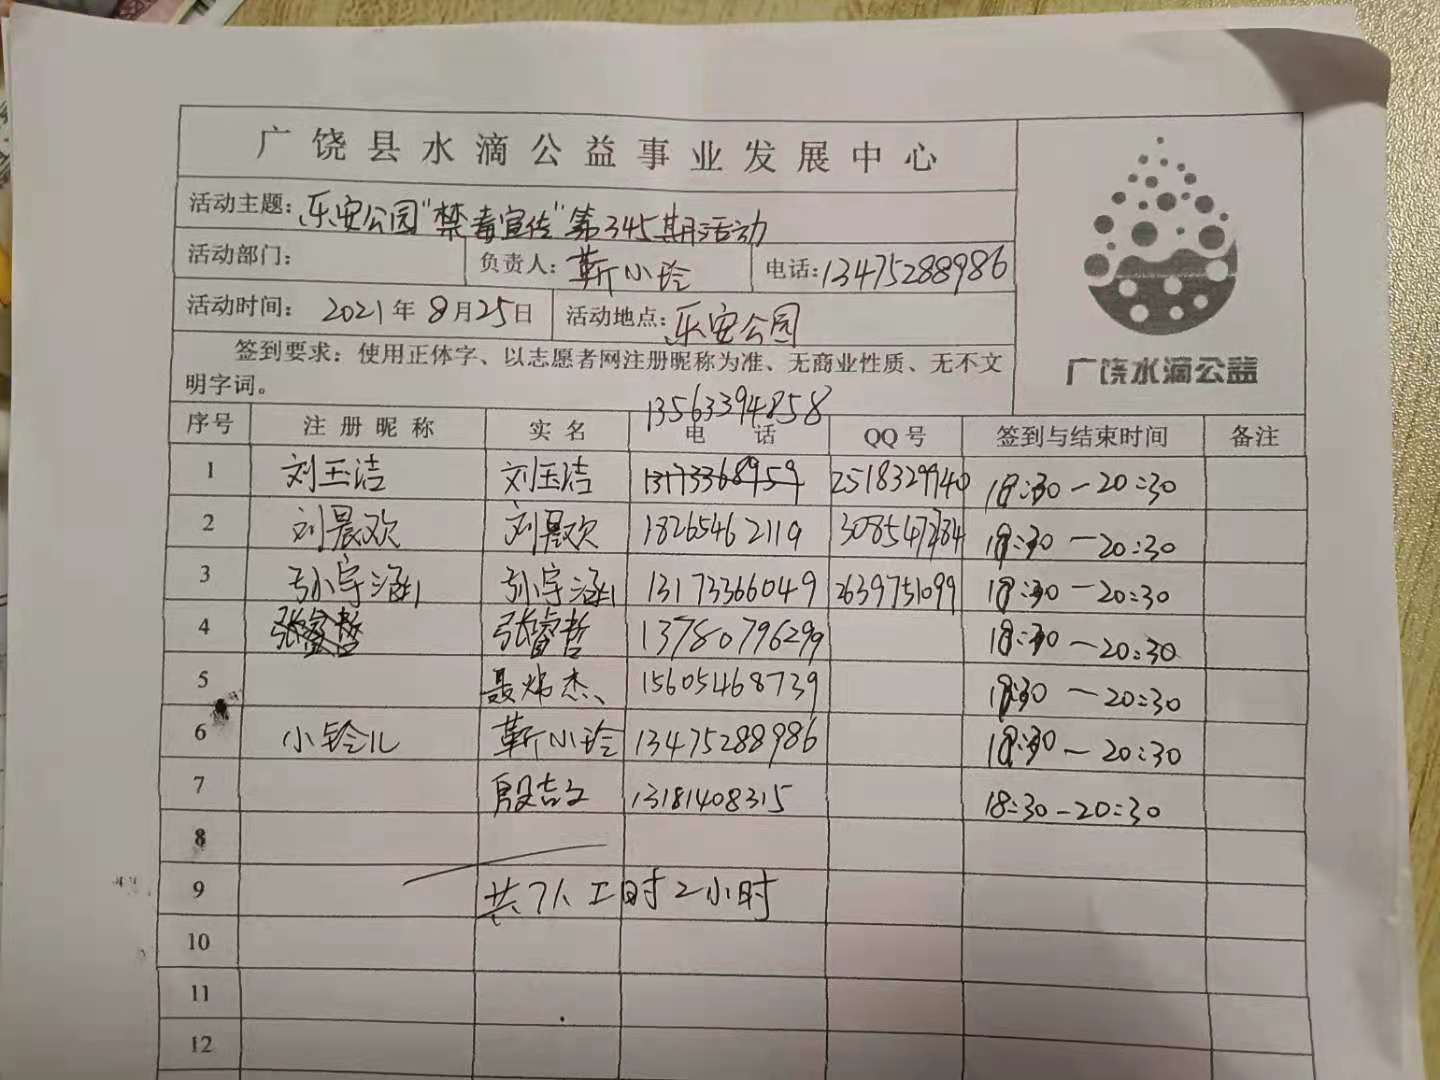 广饶县水滴公益事业发展中心
活动主题：乐安公园“禁毒宣传”第345期活动
活动部门： 负责人：靳小玲 电话：13475288986
活动时间： 2021年8月25日 活动地点：乐安公园
签到要求：使用正体字、以志愿者网注册昵称为准、无商业性质、无不文
明字词。
广饶水滴公益
13563394858
序号 注册昵称 实名 电话 QQ号 签到与结束时间 备注
1 刘玉洁 刘玉洁 13173368959 2518329940 18:30-20:30
2 刘晨欢 刘晨欢 18265462119 18:30-20:30
3 孙宇涵 孙宇涵 13173366049 2639751099 18:30-20:30
4 张睿哲 张睿哲 13780796299 18:30-20:30
5 聂炜杰 15605468739 18:30-20:30
6 小铃儿 靳小玲 13475288986 18:30-20:30
7 13181408315 18:30-20:30
8
9 共7人工时2小时
10
11
12